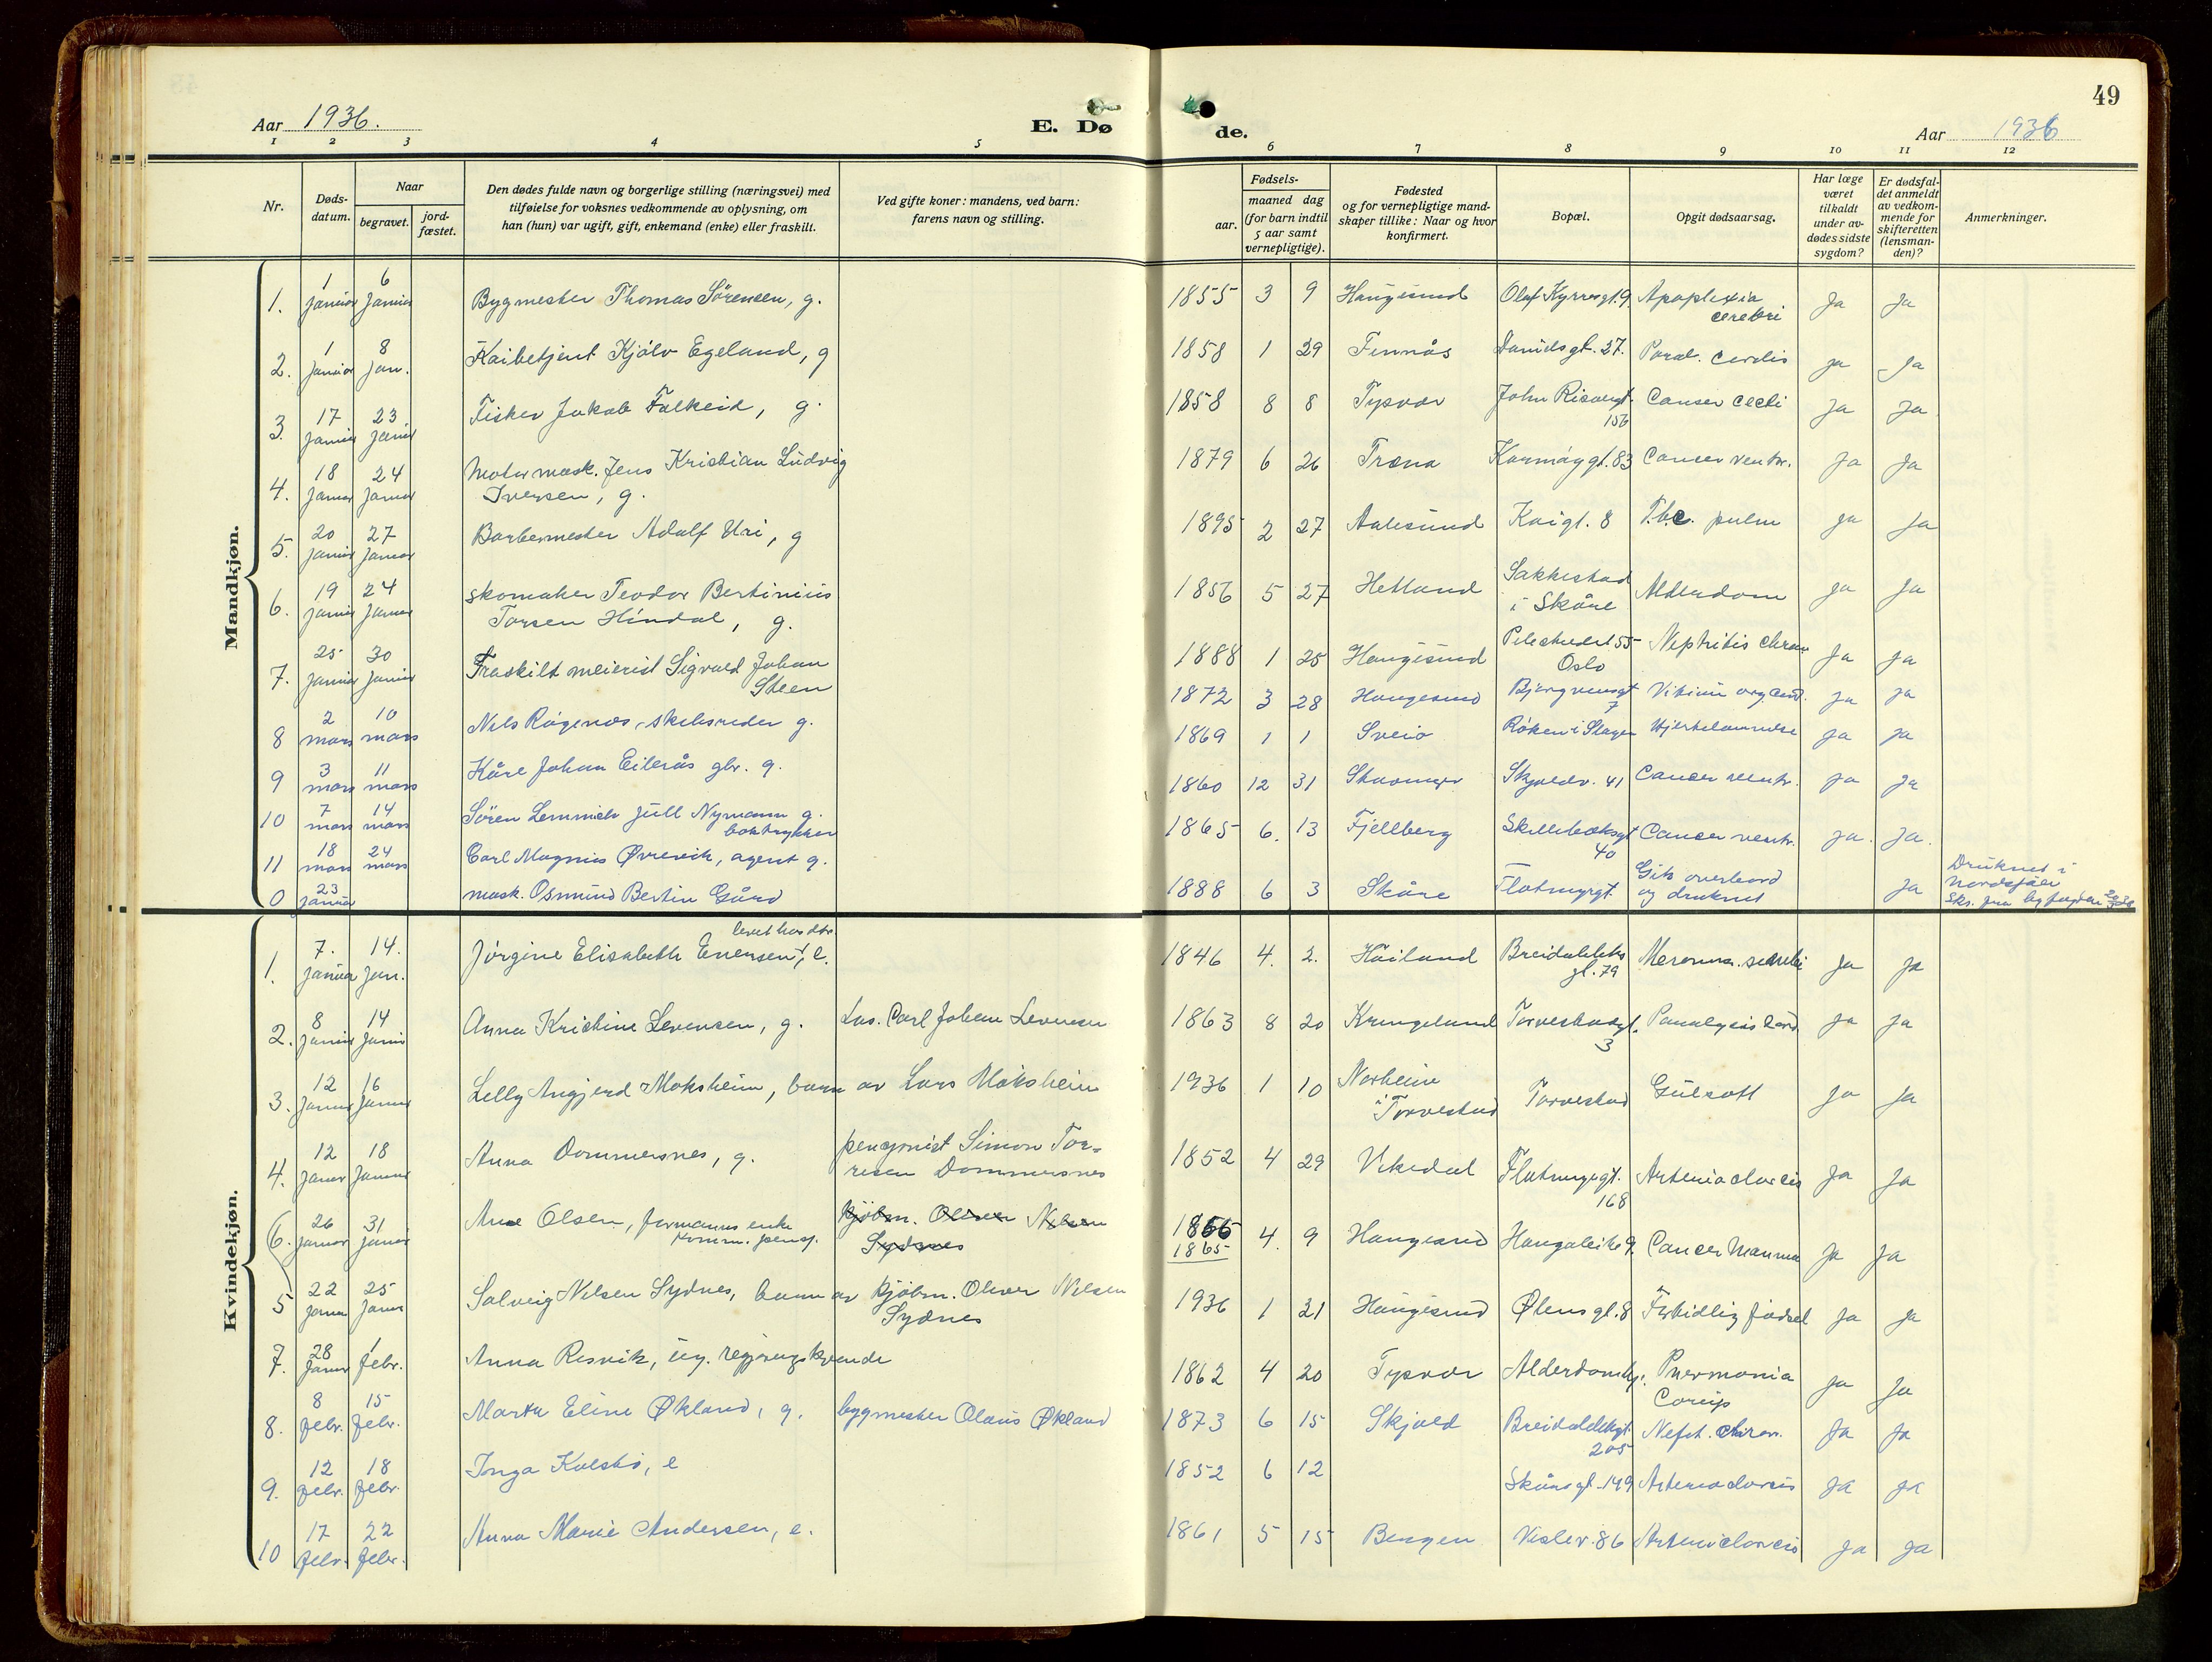 49
Aar 1936.
E. Dø
de.
Aar 1936
1 2 3 4 5 6 7 8 9 10 11 12
Nr.
Døds-
datum.
Naar
begravet.
jord-
fæstet.
Den dødes fulde navn og borgerlige stilling (næringsvei) med
tilføielse for voksnes vedkommende av oplysning, om
han (hun) var ugift, gift, enkemand (enke) eller fraskilt.
Ved gifte koner: mandens, ved barn:
farens navn og stilling.
Fødsels-
aar.
maaned dag
(for barn indtil
5 aar samt
vernepligtige).
Fødested
og for vernepligtige mand-
skaper tillike: Naar og hvor
konfirmert.
Bopæl.
Opgit dødsaarsag.
Har læge
været
tilkaldt
under av-
dødes sidste
sygdom?
Er dødsfal-
det anmeldt
av vedkom-
mende for
skifteretten
(lensman-
den)?
Anmerkninger.
Mandkjøn.
1. 1 januar 6 januar Bygmester Thomas Sørensen, g. 1855 3 9 Haugesund Olaf Kyrresgt. 9 Apoplexia
cerebri Ja Ja
2. 1 januar 8 jan. Kaibetjent Kjølv Egeland, g 1858 1 29 Finnås 27. Ja Ja
3. 17 januar 23 januar Fisker Jakob Falkeid, g. 1858 8 8 Tysvær John Risøensgt.
156 Cancer Ja Ja
4. 18 januar 24 januar Motormask. Jens Kristian Ludvig
Iversen, g. 1879 6 26 Træna Karmøygt. 83 Cancer ventr. Ja Ja
5. 20 januar 27 januar Barbermester Adolf Uri, g 1895 2 27 Aalesund Kaigt. 8 T.b.c. pulm Ja Ja
6. 19 januar 24 januar skomaker Teodor Bertinius
Torsen Hindal, g. 1856 5 27 Hetland Sakkestad
i Skåre Alderdom Ja Ja
7. 25 januar 30 januar Fraskilt meierist Sigvald Johan
Steen 1888 1 25 Haugesund Pilestredet 55
Oslo Nephritis chron Ja Ja
8 2 mars 10 mars Nils Røgenes, skibsreder g. 1872 3 28 Haugesund Bjørgvinsgt
7 Vitium org. cord. Ja Ja
9 3 mars 11 mars Kåre Johan Eilerås gbr. g. 1869 1 1 Sveio Røken i Slagen Hjertelammelse Ja Ja
10 7 mars 14 mars Søren Lemmich Jull Nymann g.
boktrykker 1860 12 31 Stavanger Skjoldv. 41 Cancer ventr. Ja Ja
11 18 mars 24 mars Carl Magnus Øvrevik, agent g. 1865 6. 13 Fjellberg Skillebæksgt
40 Cancer ventr. Ja. Ja.
0 23 januar mask. Osmund Bertin Gård 1888 6 3 Skåre Flotmyrgt. Gik overbord
og druknet Ja Druknet i
Nordsjøen
Kvindekjøn.
1. 7. januar 14. jan. Jørgine Elisabeth Enersen, e. 1846 4. 2. Håiland Breidablik
gt. 79 Ja Ja
2. 8 januar 14 januar Anna Kristine Levensen, g. Las. Carl Johan Levensen 1863 8 20 Kringeland Torvestadgt.
3 Paralysis Ja Ja
3. 12 januar 16 januar Lelly Angjerd Moksheim, barn av Lars Moksheim 1936 1 10 Norheim
i Torvestad Torvestad Gulsott Ja Ja
4. 12 januar 18 januar Anna Dommersnes, g. pensjonist Simon Tor-
resen Dommersnes 1852 4 29 Vikedal Flotmyrgt.
168 Ja Ja
6. 26 januar 31 januar Ane Olsen, formanns enke
komm. pensj. kjøbm. Oliver Nilsen
Sydnes 1866
1865 4. 9 Haugesund 9. Cancer Mamma Ja Ja
5 22 januar 25 januar Solveig Nilsen Sydnes, barn av kjøbm. Oliver Nilsen
Sydnes 1936 1 21 Haugesund Ølensgt. 8 Fortidlig fødsel Ja Ja
7. 28 januar 1 febr. Anna Risvik, ug. 1862 4 20 Tysvær Pneumonia Ja Ja
8. 8 febr. 15 febr. Marta Eline Økland, g. bygmester Olaus Økland 1873 6 15 Skjold Breidablikgt.
205 Nefrit. chron. Ja Ja
9. 12 febr. 18 febr. Inga Kolstø, e 1852 6 12 Skåregt. 149 Ja Ja
10 17 febr. 22 febr. Anna Marie Andersen, e. 1861 5 15 Bergen 86 Ja Ja